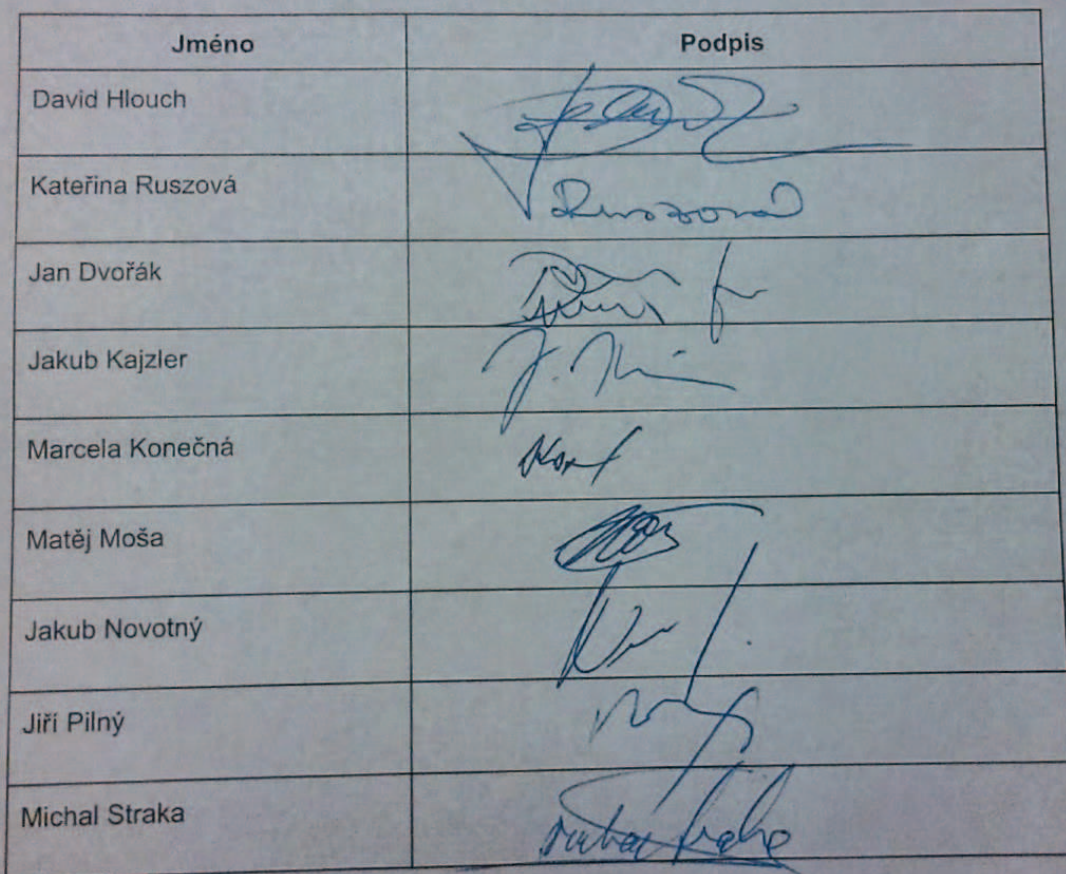 Jméno Podpis
David Hlouch
Kateřina Ruszová Ruszová
Jan Dvořák
Jakub Kajzler
Marcela Konečná
Matěj Moša
Jakub Novotný
Jiří Pilný
Michal Straka